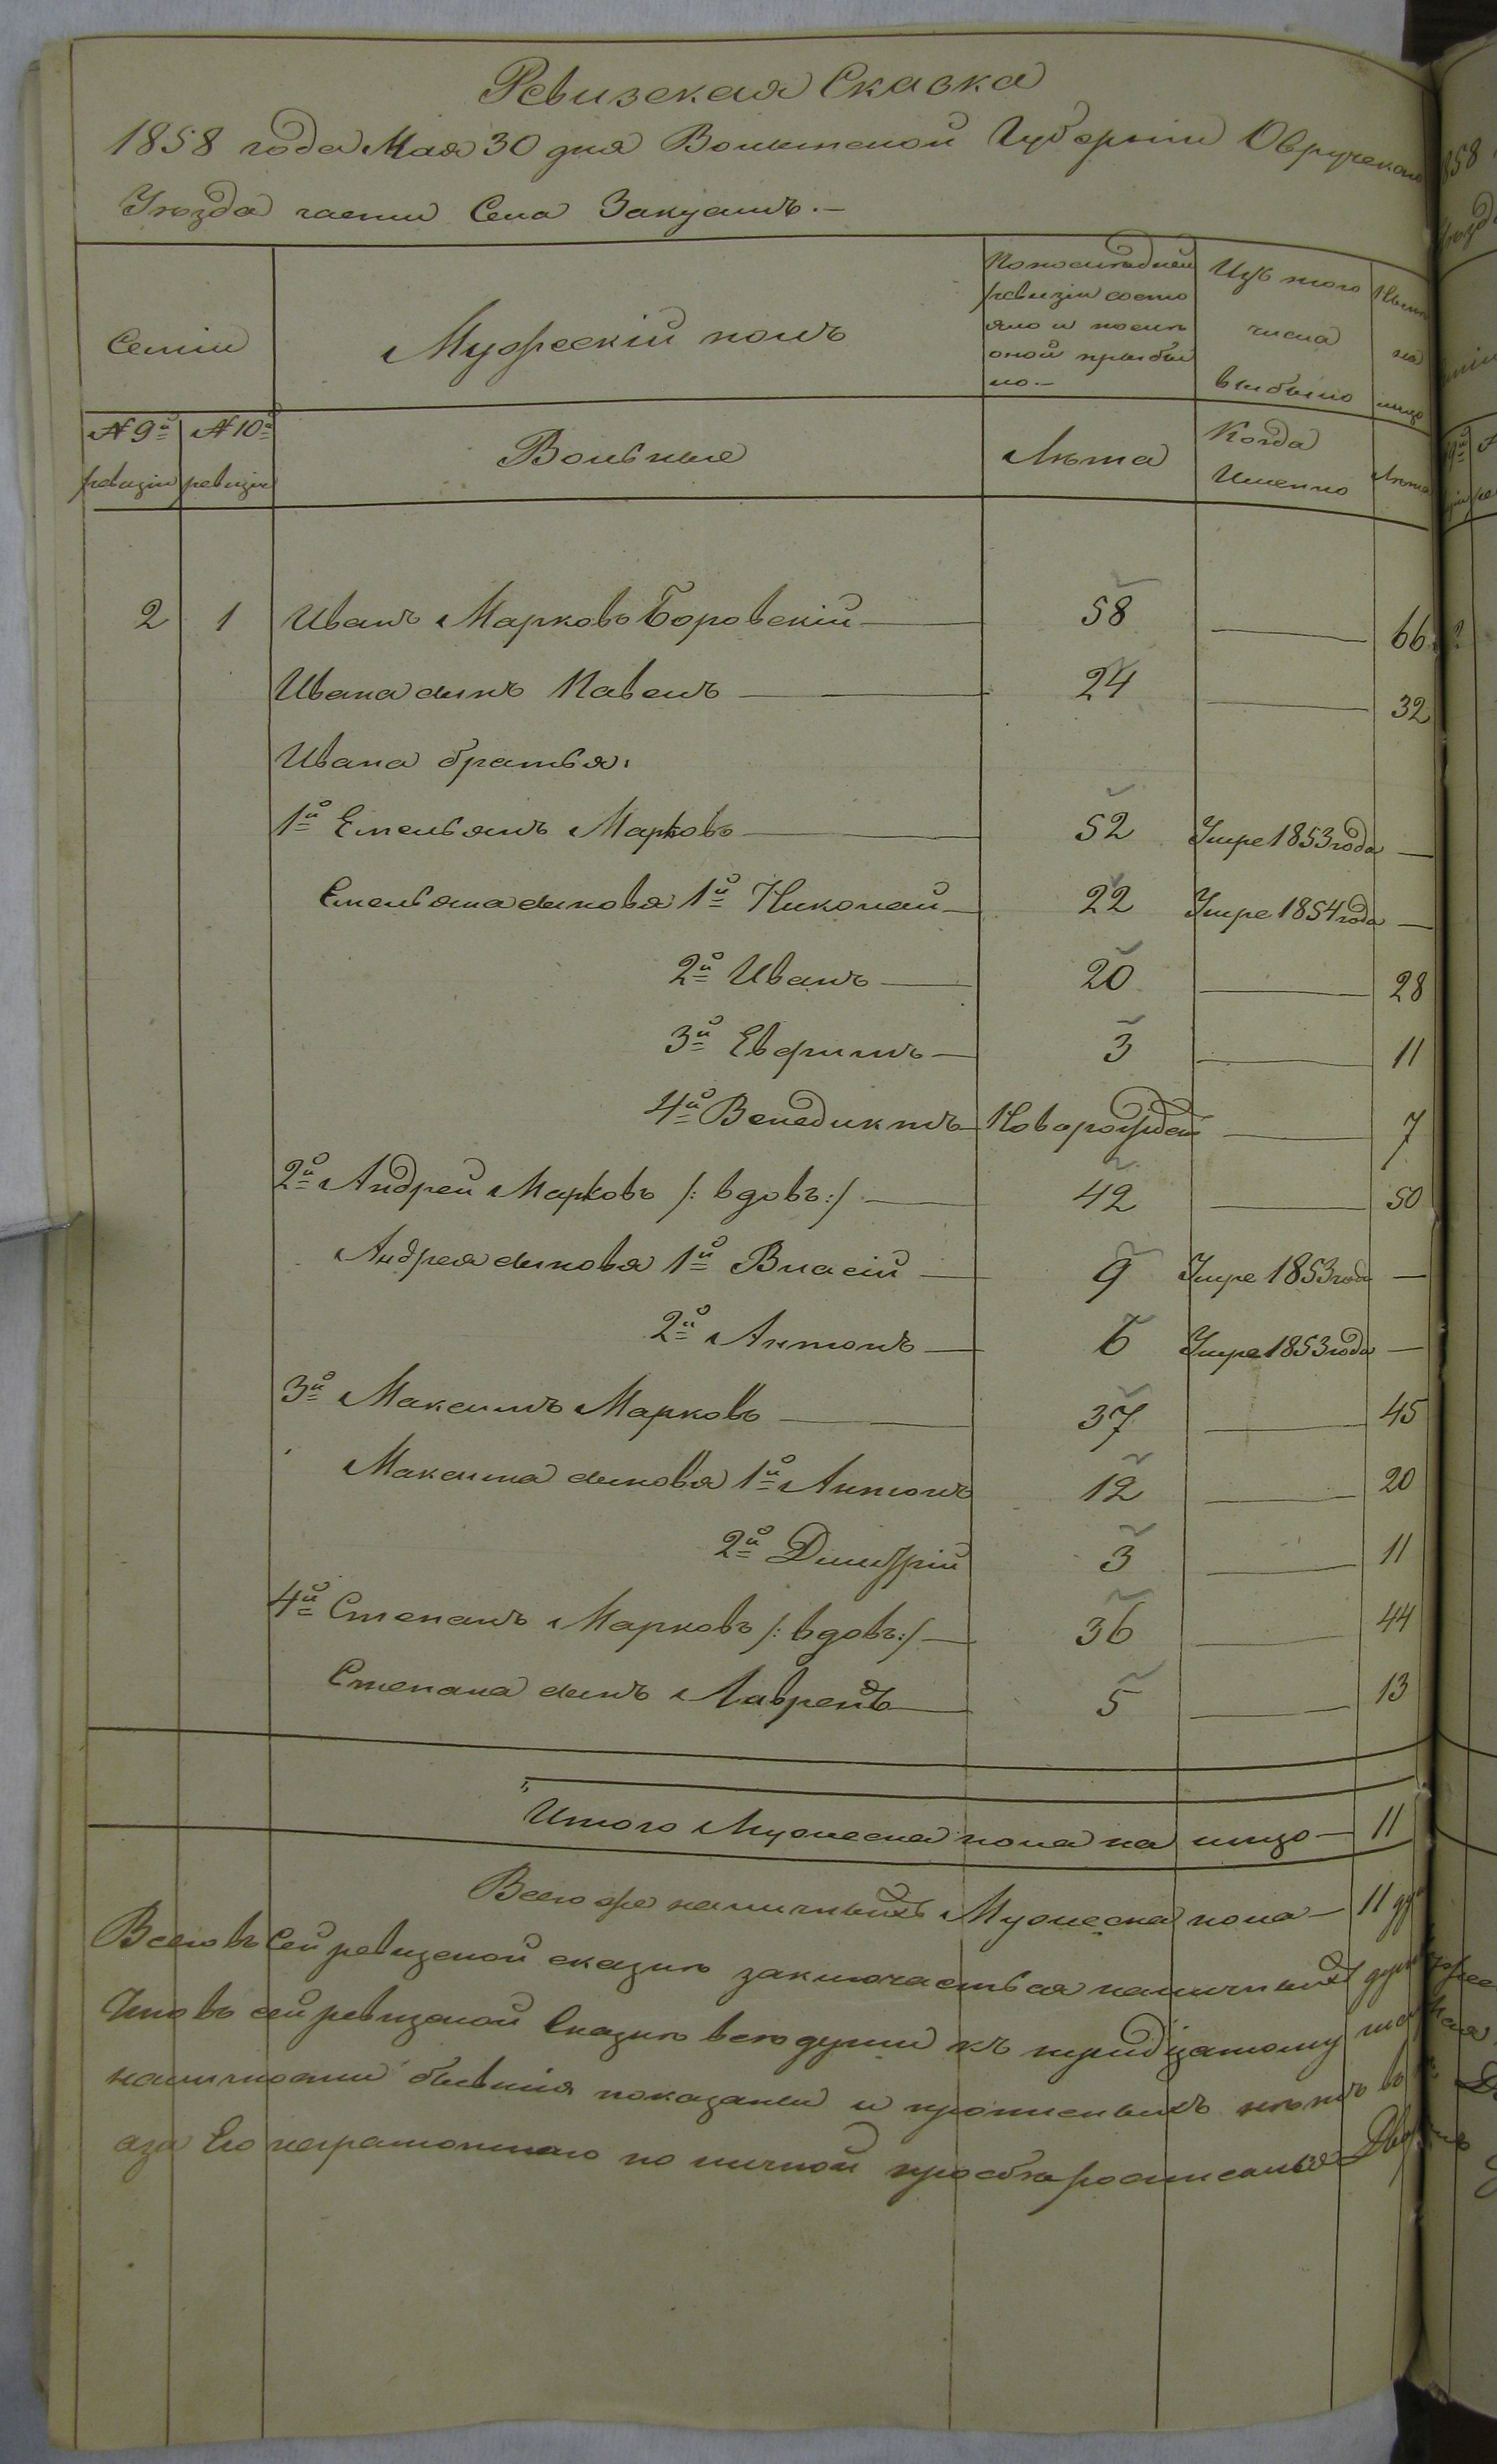 Ревизская Сказка
1858 года Мая 30 дня Волынской Губерніи Овручскаго
Уѣзда части Села Закусилъ.—
Семіи
Мужескій полъ
По последней ревизіи состояло и послѣ оной прибыло.—
Изъ того числа выбыло
Нынѣ на лице
№ 9й ревизіи
№ 10й ревизіи
Вольные
Лѣта
Когда Именно
Лѣта
2 1 Иванъ Марковъ Боровскій 58 — 66
Ивана сынъ Павелъ 24 — 32
Ивана братья:
1й Емельянъ Марковъ 52 Умре 1853 года —
Емельяна сыновья 1й Николай 22 Умре 1854 года —
2й Иванъ 20 — 28
3й Евфимъ 3 — 11
4й Венедиктъ Новорожден — 7
2й Андрей Марковъ /: вдовъ :/ 42 — 50
Андрея сыновья 1й Власій 9 Умре 1853 года —
2й Антонъ 6 Умре 1853 года —
3й Максимъ Марковъ 37 — 45
Максима сыновья 1й Антонъ 12 — 20
2й Димитрій 3 — 11
4й Степанъ Марковъ /: вдовъ :/ 36 — 44
Степана сынъ Лавренъ 5 — 13
Итого Мужеска пола на лицо — 11
Всего же наличныхъ Мужеска пола — 11 ду
Всего въ Сей ревизской сказкѣ заключаеться наличныхъ душъ
Что въ сей ревизской Сказкѣ всѣ души къ тридцатому
наличности бывшія показаны и прописныхъ нѣтъ въ
аза Его неграмотнаго по личной прозбѣ росписался Двор